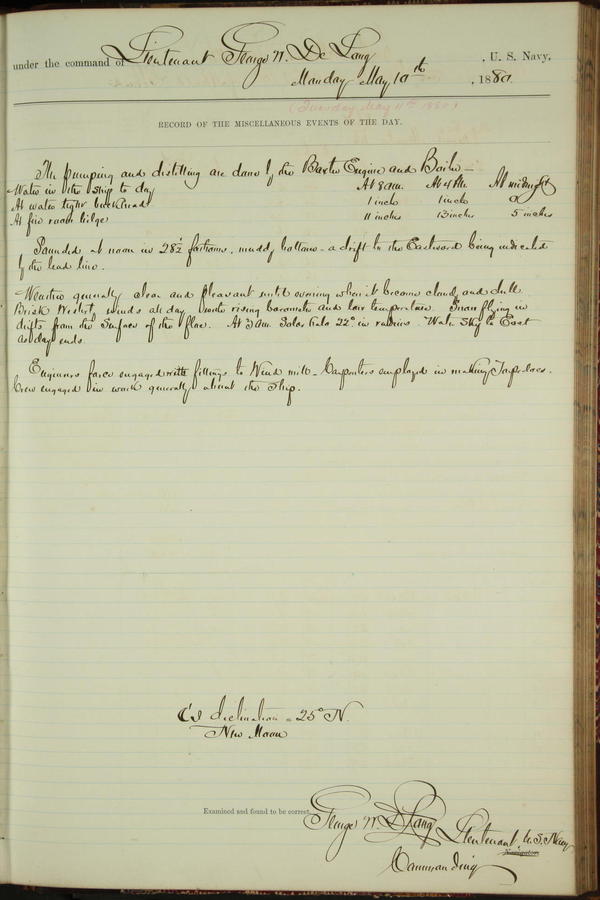 under the command of Lieutenant George W. De Long, U. S. Navy,
Monday May 10th, 1880.
(Tuesday May 11th 1880)
RECORD OF THE MISCELLANEOUS EVENTS OF THE DAY.
The pumping and distilling are done by the Baxter Engine and Boiler—
Water in the ship to day At 8 am. At 4 PM. At midnight
At water tight bulkhead 1 inch 1 inch 0
At fire room bilge 11 inches 13 inches 5 inches
Sounded at noon in 28½ fathoms, muddy bottom — a drift to the Eastward being indicated
by the lead line.
Weather generally clear and pleasant until evening when it became cloudy and dull.
Brisk Westerly winds all day under rising barometer and low temperature. Snow flying in
drifts from the surface of the floe. At 3 am. Solar halo 22° in radius. Water Sky to East
as day ends.
Engineers force engaged with fittings to Wind mill — Carpenters employed in making
Crew engaged in work generally about the Ship.
☾'s declination = 25° N.
New Moon
Examined and found to be correct.
George W. De Long Lieutenant U.S. Navy
Navigator.
Commanding